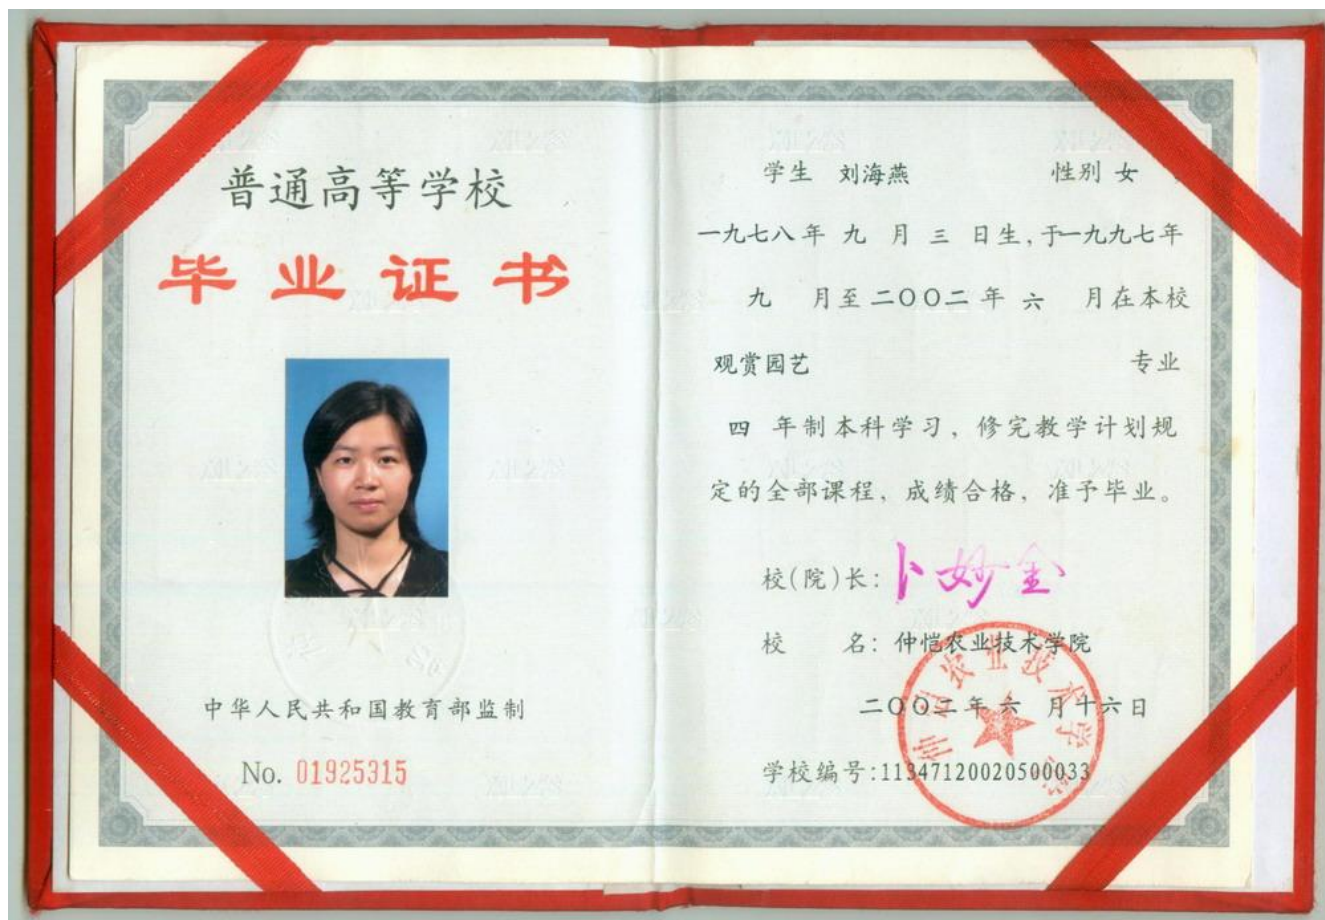 普通高等学校
毕业证书
中华人民共和国教育部监制
No. 01925315
学生 刘海燕 性别 女
一九七八年 九 月 三 日生,于一九九七年
九 月至二〇〇二年 六 月在本校
观赏园艺 专业
四 年制本科学习，修完教学计划规
定的全部课程，成绩合格，准予毕业。
校(院)长: 卜妙金
校 名: 仲恺农业技术学院
二〇〇二年六 月十六日
学校编号:11347120020500033
仲恺农业技术学院